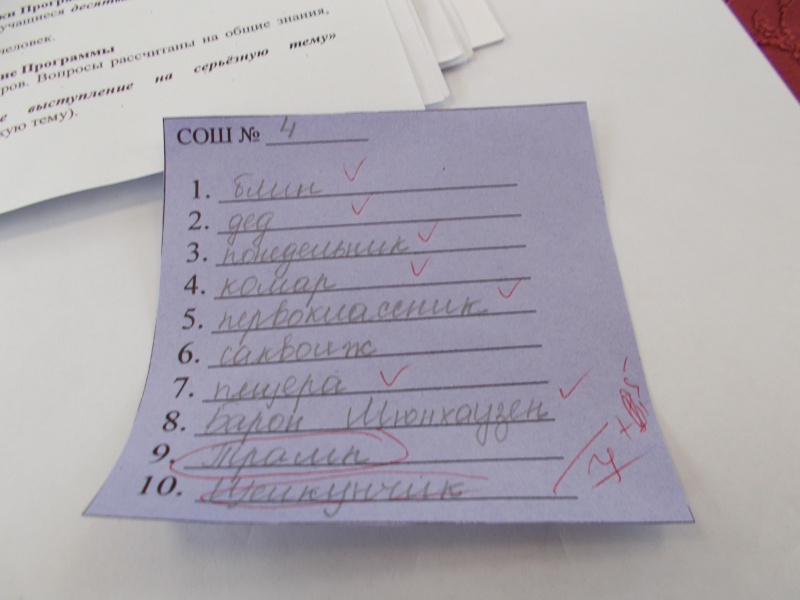 ки Програ
учащиеся десять
человек.
ие Программы
ров. Вопросы рассчитаны на общие знания,
е выступление на серьёзную тему»
кую тему).
СОШ № 4
1. блин
2. дед
3. понедельник
4. комар
5. первоклассник
6. саквояж
7. пещера
8. Барон Мюнхаузен
9. Трамп
10.
7